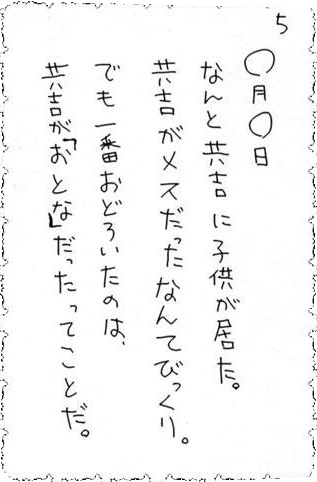 5
〇月〇日
なんと共吉に子供が居た。
共吉がメスだったなんてびっくり。
でも一番おどろいたのは、
共吉が「おとな」だったってことだ。